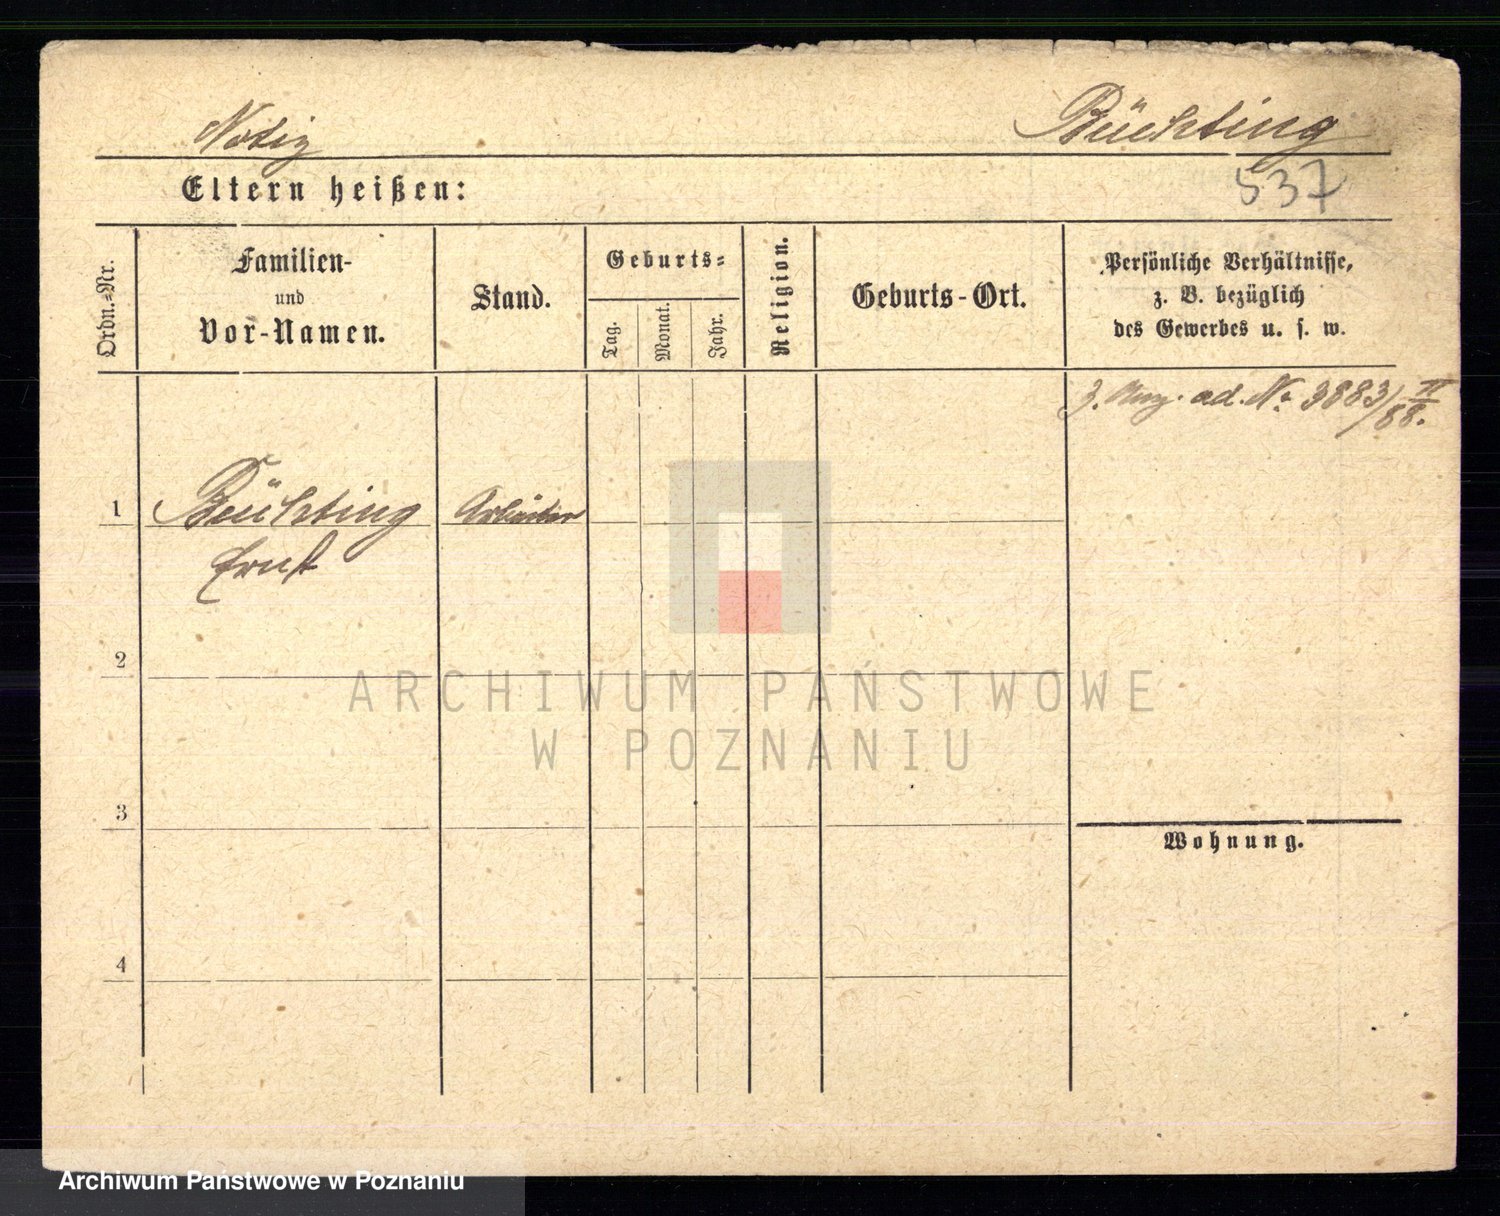 Notiz Büchting
Eltern heißen: 537
Ordn.-Nr.
Familien-
und
Vor-Namen.
Stand.
Geburts-
Tag.
Monat.
Jahr.
Religion.
Geburts-Ort.
Persönliche Verhältnisse,
z. B. bezüglich
des Gewerbes u. s. w.
ad. No. 3883/II 88.
1 Büchting Arbeiter
Ernst
2
3
4
Wohnung.
ARCHIWUM PAŃSTWOWE
W POZNANIU
Archiwum Państwowe w Poznaniu